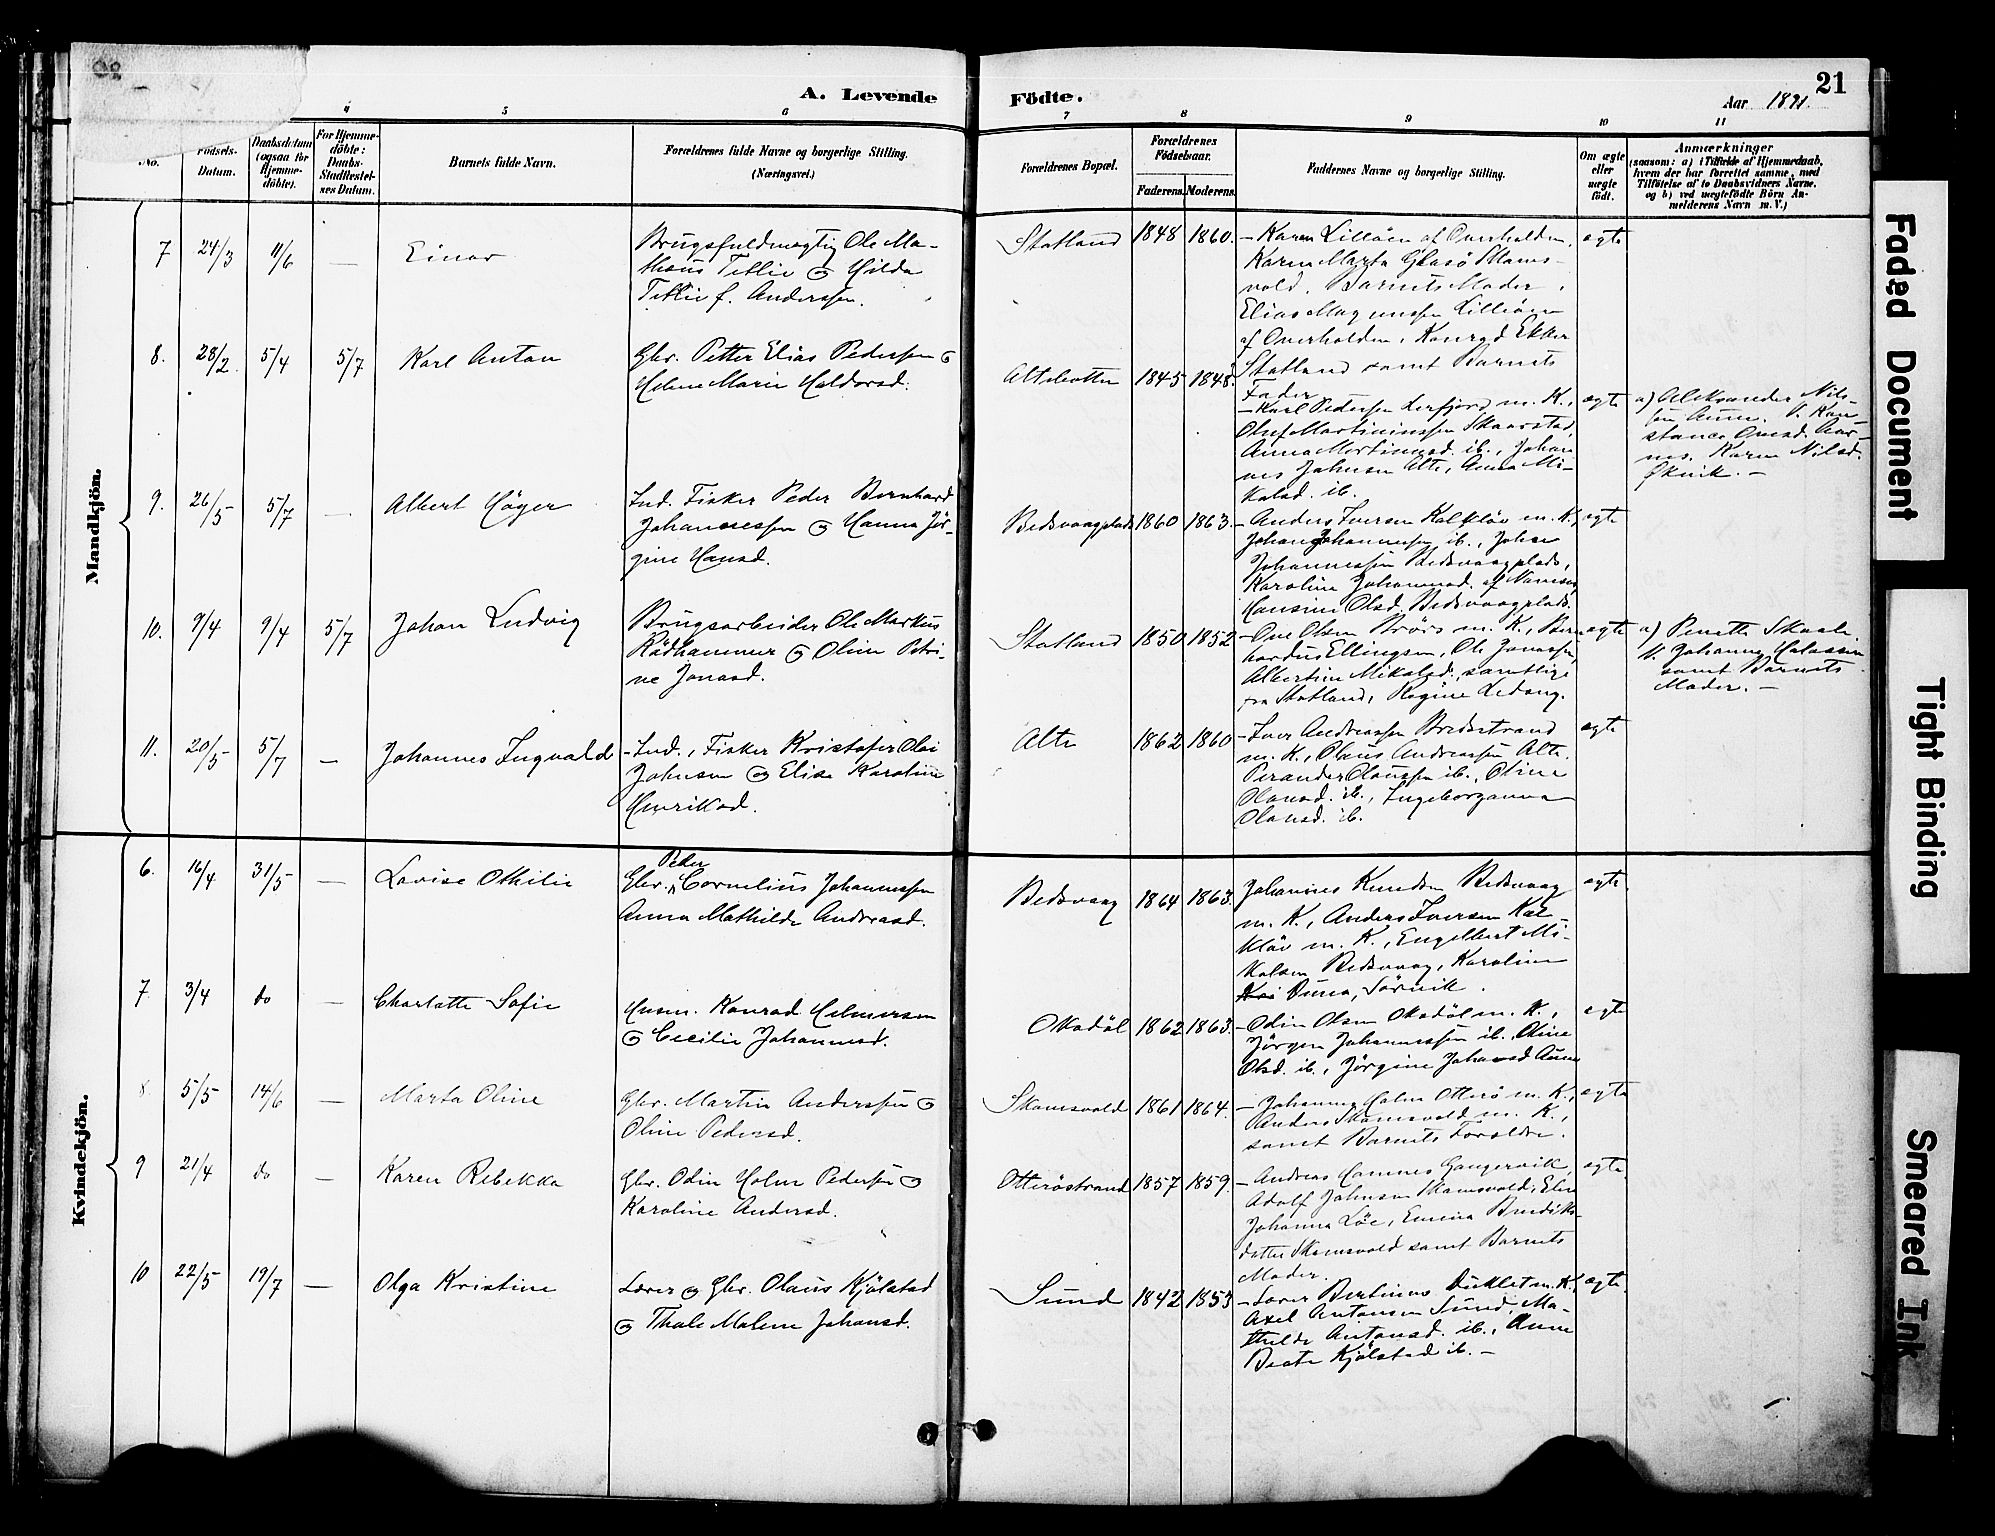 A. Levende Födte.
21
Aar 1891.
4 5 6 7 8 9 10 11
No.
Födsels-Datum.
Daabsdatum (ogsaa for Hjemme-döbte).
For Hjemme-döbte: Daabs-Stadfæstel-ses Datum.
Barnets fulde Navn.
Forældrenes fulde Navne og borgerlige Stilling. (Næringsvei.)
Forældrenes Bopæl.
Forældrenes Födselsaar.
Faderens. Moderens.
Faddernes Navne og borgerlige Stilling.
Om ægte eller uægte födt.
Anmærkninger
(saasom: a) i Tilfælde af Hjemmedaab, hvem der har forrettet samme, med Tilföielse af to Daabsvidners Navne, og b) ved uægtefödte Börn An-melderens Navn m. V.)
Mandkjön.
7 24/3 11/6 — Einar
Brugsfuldmægtig Ole Ma-
thæus Tetlie & Hilda
Tetlie f. Anderssen.
Statland 1848 1860.
- Karen Lilleøen af Overhalden,
Karen Marta Glasö Skams-
vold, Barnets Moder,
Elias Magnussen Lilleøen
af Overhalden, Konrad Ekker
Statland samt Barnets
Fader
ægte
8. 28/2 5/4 5/7 Karl Anton
Gbr. Petter Elias Pedersen &
Helene Marie Haldorsd.
Altebotten 1845 1848.
- Karl Pedersen Lerfjord m. K.,
Oluf Martiniussen Skaarstad,
Anna Martinusd. ib., Johan-
nes Johnsen Alte, Anna Mi-
kalsd. ib.
ægte
a) Aleksander Nils-
sen Aune. V. Kon-
stance Amsd. Aar-
nes. Karen Nilsd.
Økvik. -
9. 26/5 5/7 — Albert Höger
Ind. Fisker Peder Bernhard
Johannessen & Hanna Jör-
gine Hansd.
Bedsvaagplads 1860 1863.
- Anders Iversen Kalkløv m. K.,
Johan Johannessen ib., Johan
Johannessen Bedsvaagplads,
Karoline Johannesd. af Namsos,
Hansine Olsd. Bedsvaagplads.
ægte
10. 9/4 9/4 5/7 Johan Ludvig
Brugsarbeider Ole Markus
Rödhammer & Oline Petri-
ne Jonasd.
Statland 1850 1852
- Ove Olsen Brörs m. K., Bern-
hardus Ellingsen, Ole Jonassen,
Albertine Mikalsd., samtlige
fra Statland, Regine Ledang.
ægte
a) Penette Skaale.
V. Johanna
samt Barnets
Moder. -
11. 20/5 5/7 — Johannes Ingvald
- Ind., Fisker Kristofer Olai
Johnsen og Elise Karoline
Henriksd.
Alte 1862 1860
- Iver Andreassen Bredestrand
m. K., Olaus Andreassen Alte,
Perander Olaussen ib., Oline
Olausd. ib., Ingeborganna
Olausd. ib.
ægte
Kvindekjön.
6. 16/4 31/5 — Lovise Othilie
Peder
Gbr. Cornelius Johannessen
Anna Mathilde Andreasd.
Bedsvaag 1864 1863.
Johannes Knudsen Bedsvaag
m. K., Anders Iversen Kal-
kløv m. K., Engelbert Mi-
kalsen Bedsvaag, Karoline
Duna, Sörvik.
ægte.
7 3/4 do — Charlotte Sofie
Husm. Konrad Helmersen
& Cecilie Johannesd.
Oksdöl 1862 1863.
- Odin Olsen Oksdöl m. K.,
Jörgen Johannessen ib., Oline
Olsd. ib., Jörgine Johansd Aune
ægte
8 5/5 14/6 — Marta Oline
Gbr. Martin Anderssen &
Oline Pedersd.
Skamsvold 1861 1864.
- Johannes Holm Otterö m. K.,
Anders Skamsvold m. K.,
samt Barnets Foreldre.
ægte
9 21/4 do — Karen Rebekka
Gbr. Odin Holm Pedersen &
Karoline Andersd.
Otteröstrand 1857 1859.
- Andreas Hamnes Gangervik,
Adolf Johnsen Skamsvold, Elen
Johanna Löe, Emma Bendiks-
datter Skamsvold samt Barnets
Moder.
ægte.
10 22/5 19/7 — Olga Kristine
Lærer og Gbr. Olaus Kjölstad
& Thale Malene Johansd.
Sund 1842 1853
- Lærer Bertinus Duklæt m. K.,
Axel Antonsen Sund, Ma-
thilde Antonsd. ib., Anne
Beate Kjölstad ib. -
ægte.
Faded Document
Tight Binding
Smeared Ink